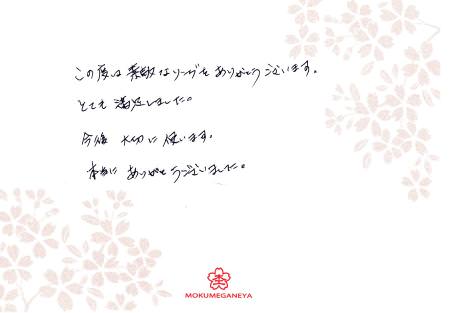 この度は素敵なリングをありがとうございます。
とても満足しました。
今後大切に使います。
本当にありがとうございました。
MOKUMEGANEYA